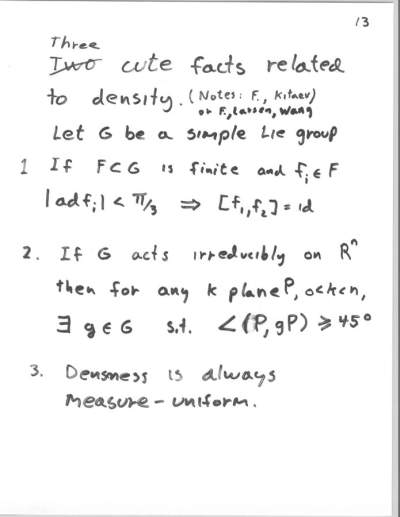 13
Three
Two cute facts related
to density. (Notes: F., Kitaev)
or F., Larsen, Wang
Let G be a simple Lie group
1 If F⊂G is finite and fᵢ ∈ F
|ad fᵢ| < π/3 ⇒ [f₁, f₂] = id
2. If G acts irreducibly on Rⁿ
then for any k plane P, o<k<n,
∃ g ∈ G s.t. ∠(P, gP) ⩾ 45°
3. Densness is always
measure-uniform.